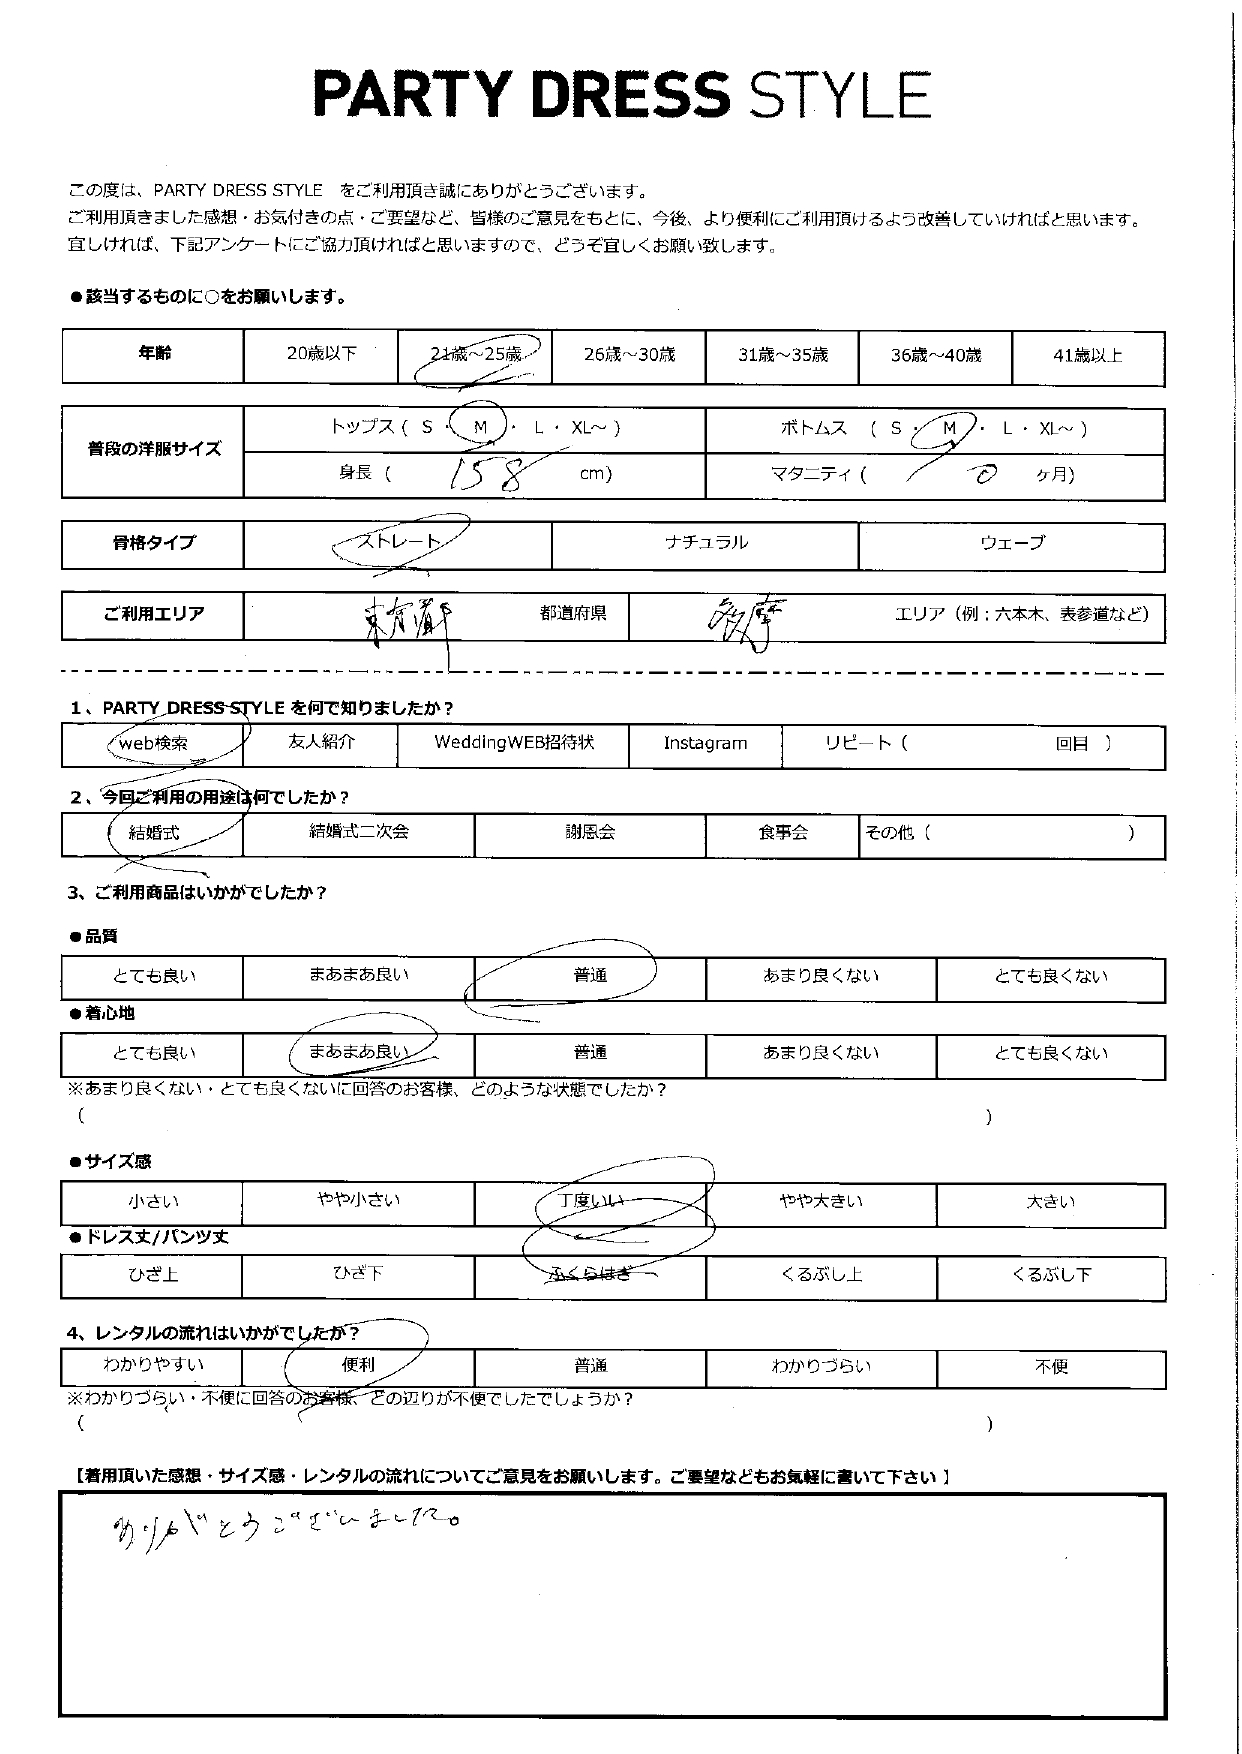 PARTY DRESS STYLE
この度は、PARTY DRESS STYLE　をご利用頂き誠にありがとうございます。
ご利用頂きました感想・お気付きの点・ご要望など、皆様のご意見をもとに、今後、より便利にご利用頂けるよう改善していければと思います。
宜しければ、下記アンケートにご協力頂ければと思いますので、どうぞ宜しくお願い致します。
●該当するものに○をお願いします。
年齢 20歳以下 21歳～25歳 26歳～30歳 31歳～35歳 36歳～40歳 41歳以上
普段の洋服サイズ トップス ( S ・ M ・ L ・ XL～ ) ボトムス ( S ・ M ・ L ・ XL～ )
身長 ( 158 cm) マタニティ ( 0 ヶ月)
骨格タイプ ストレート ナチュラル ウェーブ
ご利用エリア 都道府県 多摩 エリア（例；六本木、表参道など）
1、PARTY DRESS STYLE を何で知りましたか？
web検索 友人紹介 WeddingWEB招待状 Instagram リピート ( 回目 )
2、今回ご利用の用途は何でしたか？
結婚式 結婚式二次会 謝恩会 食事会 その他 ( )
3、ご利用商品はいかがでしたか？
●品質
とても良い まあまあ良い 普通 あまり良くない とても良くない
●着心地
とても良い まあまあ良い 普通 あまり良くない とても良くない
※あまり良くない・とても良くないに回答のお客様、どのような状態でしたか？
( )
●サイズ感
小さい やや小さい 丁度いい やや大きい 大きい
●ドレス丈/パンツ丈
ひざ上 ひざ下 ふくらはぎ くるぶし上 くるぶし下
4、レンタルの流れはいかがでしたか？
わかりやすい 便利 普通 わかりづらい 不便
※わかりづらい・不便に回答のお客様、どの辺りが不便でしたでしょうか？
( )
【着用頂いた感想・サイズ感・レンタルの流れについてご意見をお願いします。ご要望などもお気軽に書いて下さい 】
ありがとうございました。